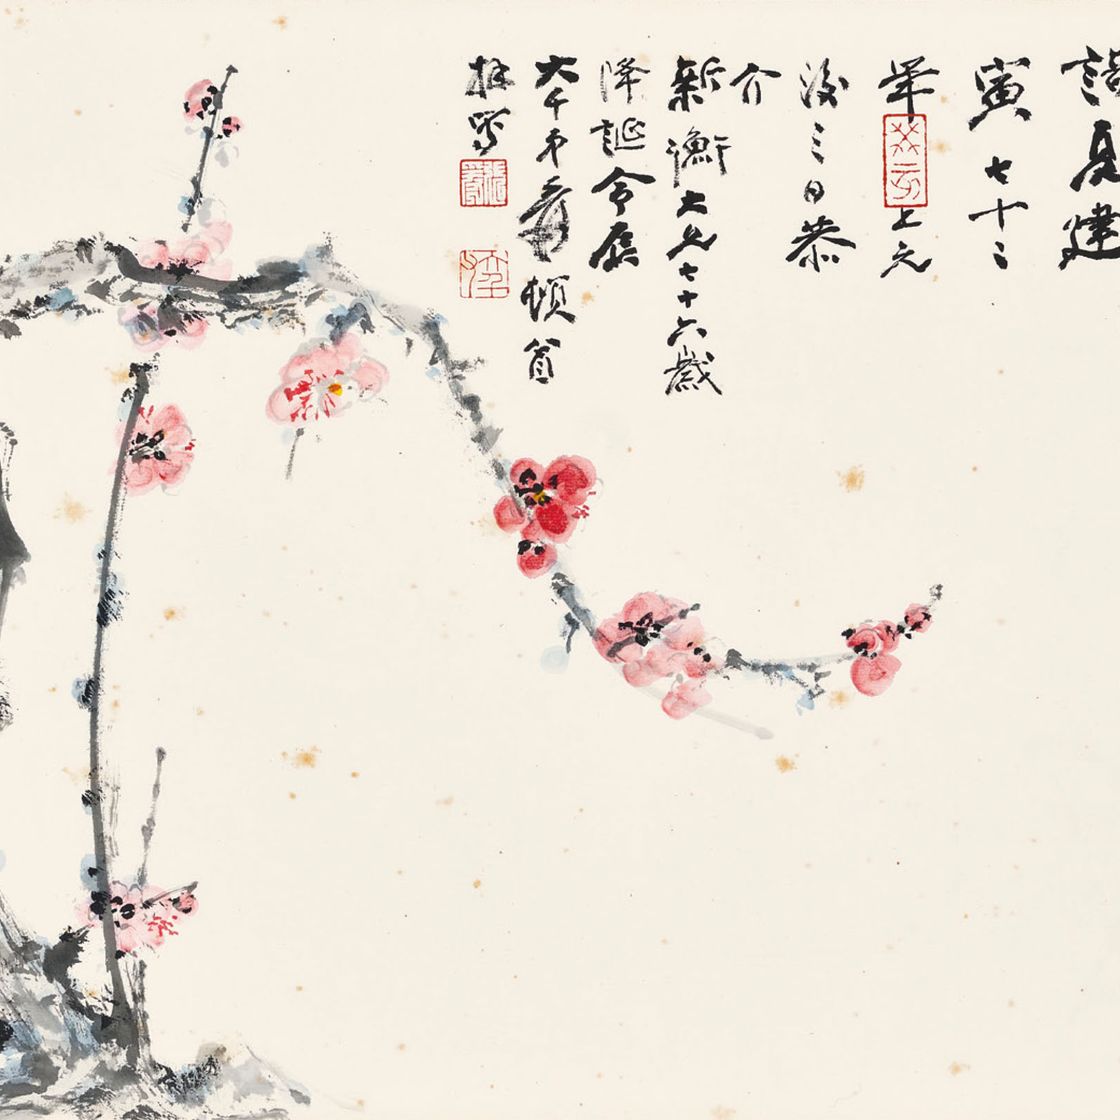 夏建
寅七十二
年上元
癸亥
後三日恭
介
新衡大兄七十六歲
降誕令辰
大千弟爰頓首
拜